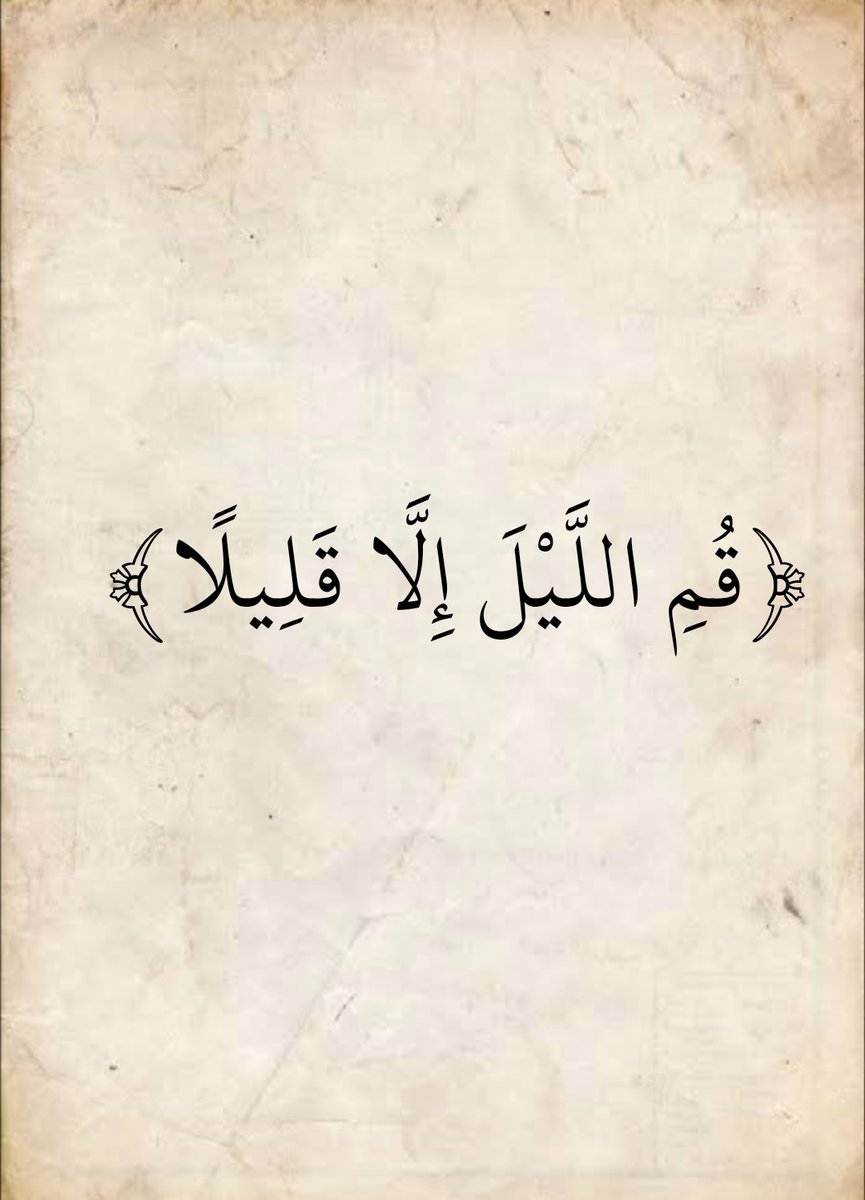 ﴿قُمِ اللَّيْلَ إِلَّا قَلِيلًا﴾